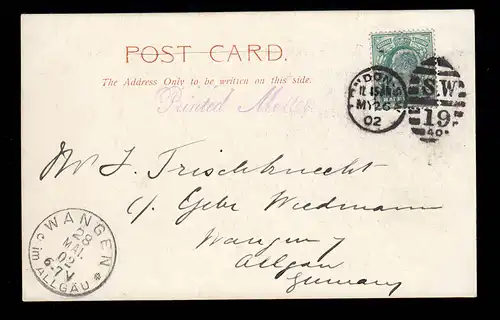 POST CARD.
The Address Only to be written on this side.
Printed Matter
LONDON S.W
11.45 AM
MY 26
02
S.W
19
40
Mr J. Frischknecht
c/o Gebr Wiedmann
Wangen
Allgäu
Germany
WANGEN
28
MAI.
02
6-7V
* im ALLGÄU *